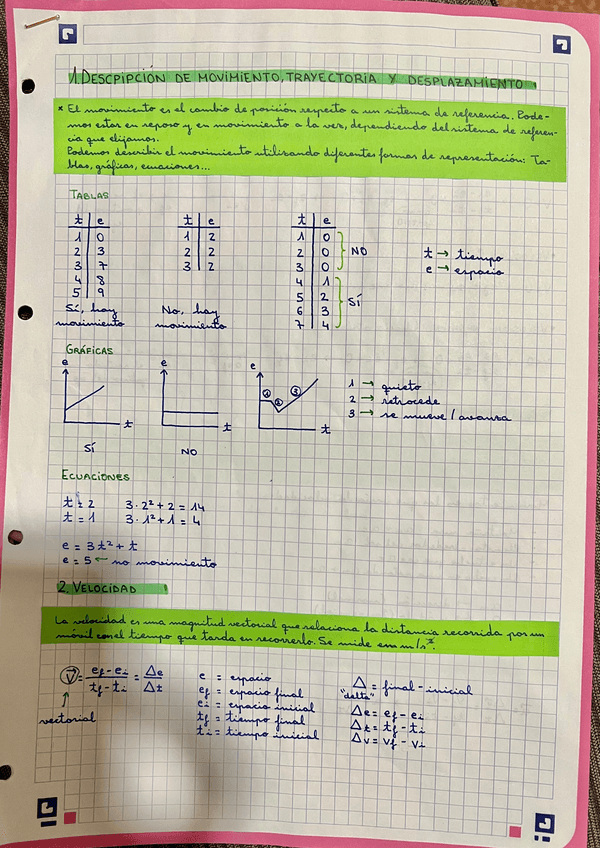 1. DESCPIPCIÓN DE MOVIMIENTO, TRAYECTORIA Y DESPLAZAMIENTO
* El movimiento es el cambio de posición respecto a un sistema de referencia. Pode-
mos estar en reposo y en movimiento a la vez, dependiendo del sistema de referen-
cia que elijamos.
Podemos describir el movimiento utilizando diferentes formas de representación: Ta-
blas, gráficas, ecuaciones...
TABLAS
t e
1 0
2 3
3 7
4 8
5 9
Sí, hay
movimiento
t e
1 2
2 2
3 2
No, hay
movimiento
t e
1 0
2 0
3 0
NO
4 1
5 2
6 3
7 4
SÍ
t → tiempo
e → espacio
GRÁFICAS
e
t
SÍ
e
t
NO
e
1 2 3
t
1 → quieto
2 → retrocede
3 → se mueve / avanza
ECUACIONES
t = 2 3·2² + 2 = 14
t = 1 3·1² + 1 = 4
e = 3t² + t
e = 5 ← no movimiento
2. VELOCIDAD
La velocidad es una magnitud vectorial que relaciona la distancia recorrida por un
móvil con el tiempo que tarda en recorrerlo. Se mide en m/s².
v = ef - ei / tf - ti = Δe / Δt
vectorial
e = espacio
ef = espacio final
ei = espacio inicial
tf = tiempo final
ti = tiempo inicial
Δ = final - inicial
"delta"
Δe = ef - ei
Δt = tf - ti
Δv = vf - vi